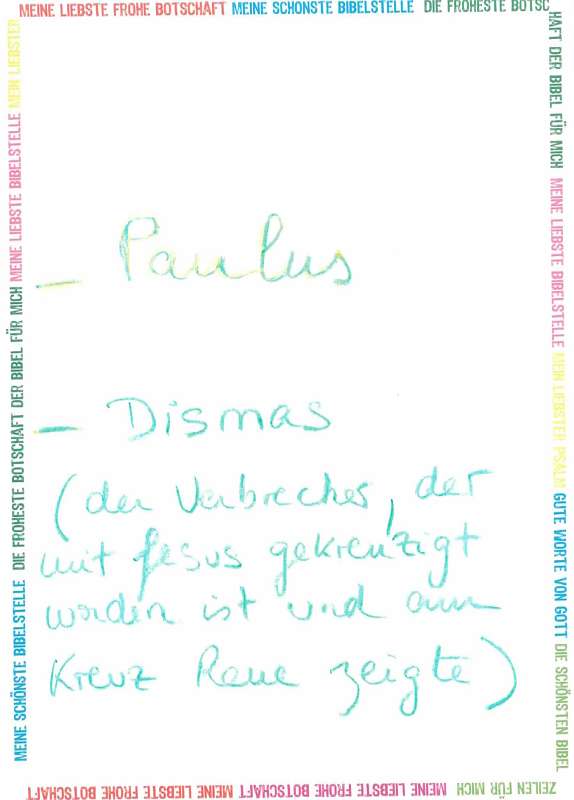 MEINE LIEBSTE FROHE BOTSCHAFT MEINE SCHÖNSTE BIBELSTELLE DIE FROHESTE BOTSC
HAFT DER BIBEL FÜR MICH MEINE LIEBSTE BIBELSTELLE MEIN LIEBSTER PSALM GUTE WORTE VON GOTT DIE SCHÖNSTEN BIBEL
ZEILEN FÜR MICH MEINE LIEBSTE FROHE BOTSCHAFT MEINE LIEBSTE FROHE BOTSCHAFT
MEINE SCHÖNSTE BIBELSTELLE DIE FROHESTE BOTSCHAFT DER BIBEL FÜR MICH MEINE LIEBSTE BIBELSTELLE MEIN LIEBSTER
– Paulus
– Dismas
(der Verbrecher, der
mit Jesus gekreuzigt
worden ist und am
Kreuz Reue zeigte)